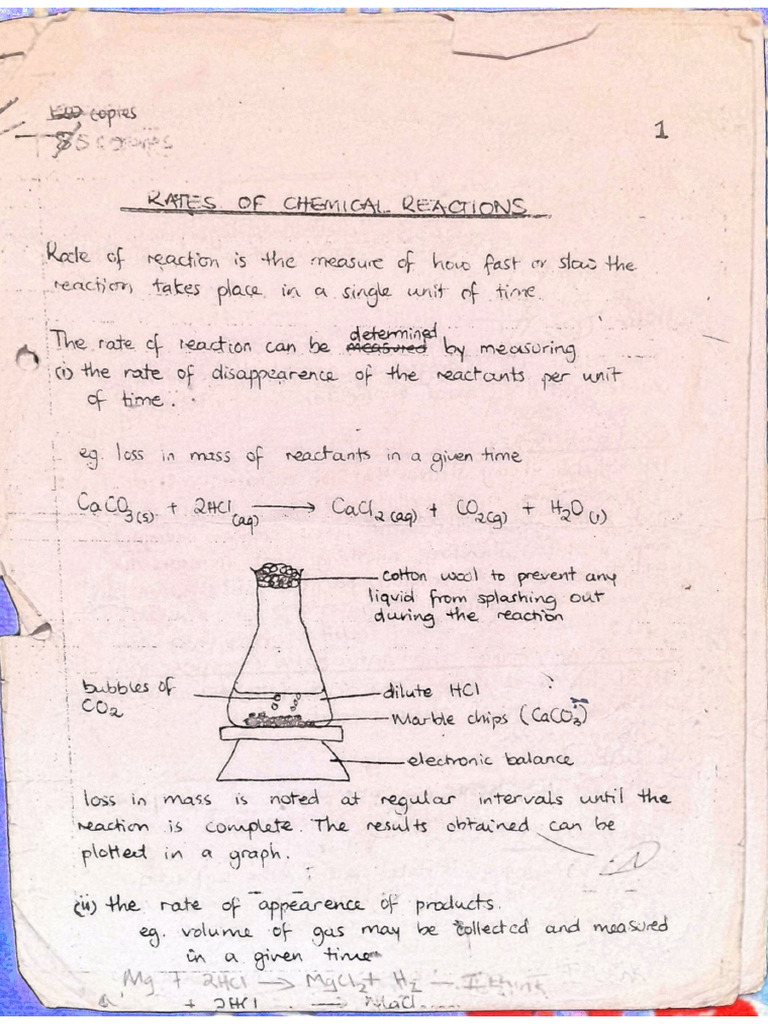 copies
1
RATES OF CHEMICAL REACTIONS
Rate of reaction is the measure of how fast or slow the
reaction takes place in a single unit of time.
The rate of reaction can be determined measured by measuring
(i) the rate of disappearence of the reactants per unit
of time.
eg. loss in mass of reactants in a given time
CaCO3(s) + 2HCl(aq) → CaCl2(aq) + CO2(g) + H2O(l)
cotton wool to prevent any
liquid from splashing out
during the reaction
bubbles of
CO2
dilute HCl
Marble chips (CaCO3)
electronic balance
loss in mass is noted at regular intervals until the
reaction is complete. The results obtained can be
plotted in a graph.
(ii) the rate of appearence of products.
eg. volume of gas may be collected and measured
in a given time
Mg + 2HCl → MgCl2 + H2 - I think
+ 2HCl →